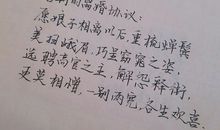 的离婚协议：
愿娘子相离以后，重梳蝉鬓
美扫峨眉，巧呈窈窕之姿
选聘高官之主，解怨释结
更莫相憎，一别两宽，各生欢喜